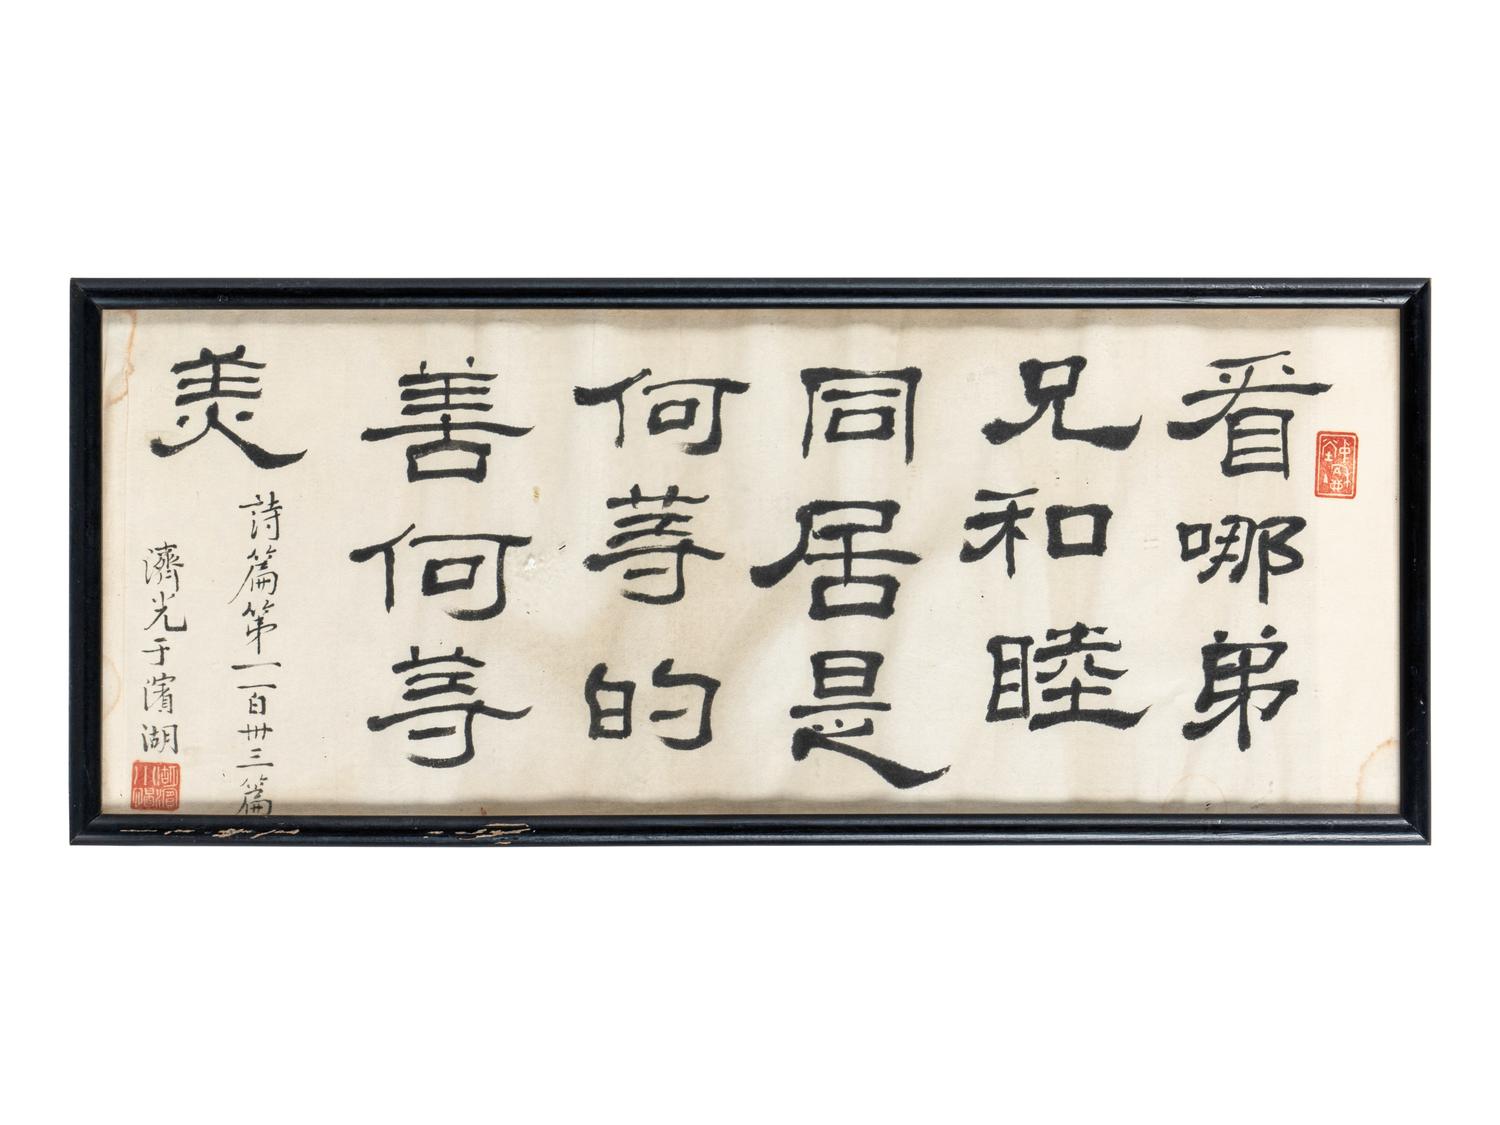 看哪弟
兄和睦
同居是
何等的
善何等
美
詩篇第一百卅三篇
濟光于濱湖